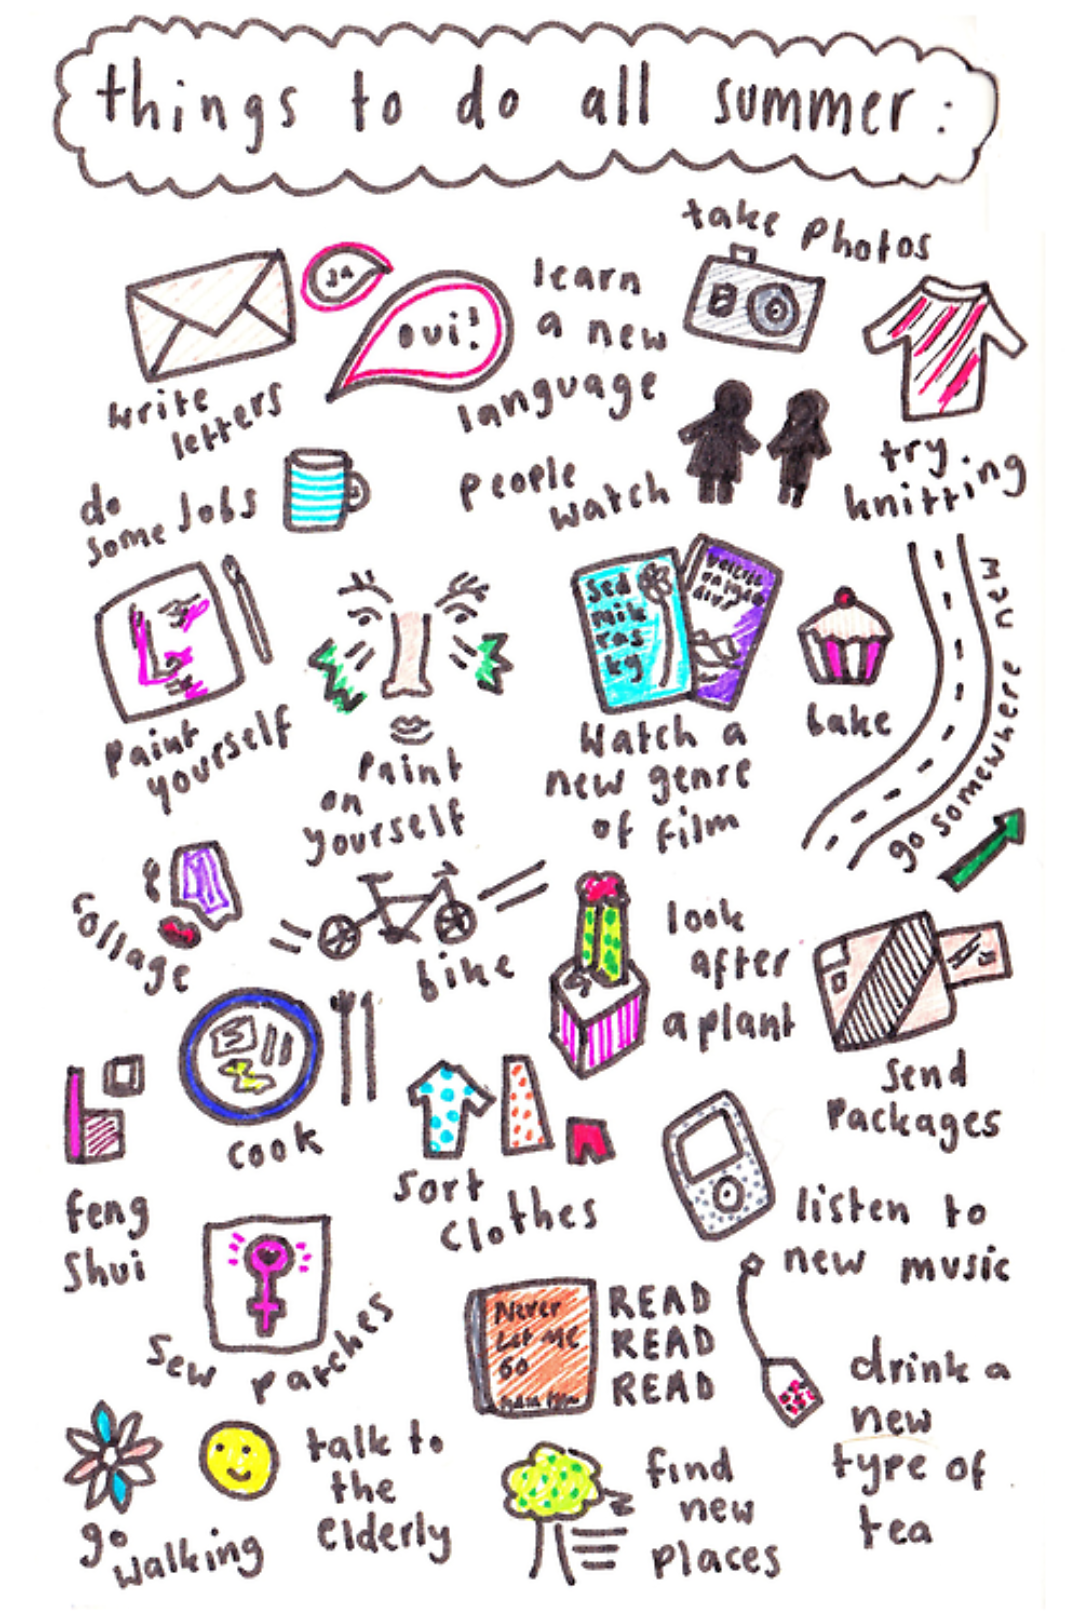 things to do all summer:
take photos
ja
oui!
learn
a new
language
write
letters
try
knitting
people
watch
do
some jobs
new
somewhere
go
Sed
mik
ras
ky
paint
yourself
paint
on
yourself
Watch a
new genre
of film
bake
collage
bike
look
after
a plant
send
packages
cook
sort
clothes
feng
shui
listen to
new music
sew patches
Never
Let Me
Go
READ
READ
READ
drink a
new
type of
tea
go
walking
talk to
the
elderly
find
new
places